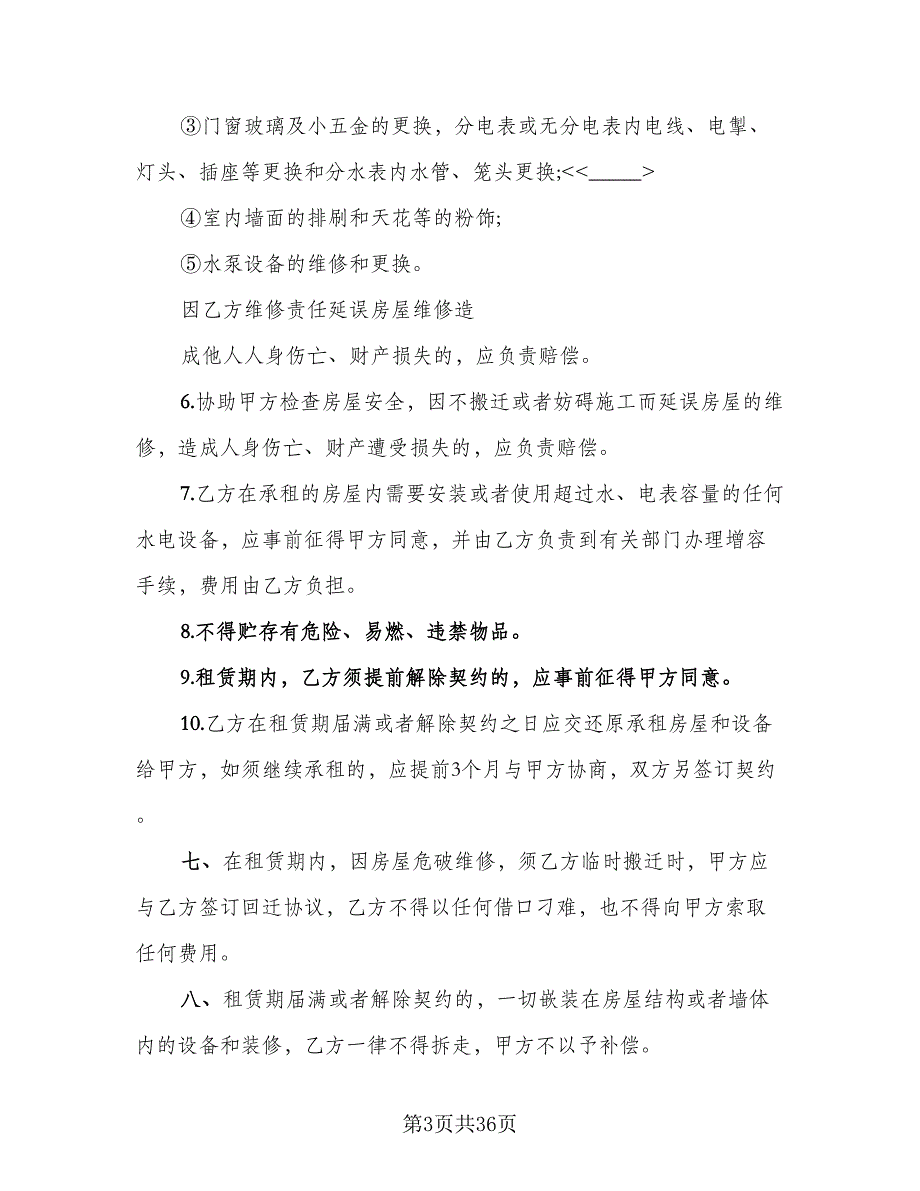 ③门窗玻璃及小五金的更换，分电表或无分电表内电线、电掣、
灯头、插座等更换和分水表内水管、笼头更换;<<_____>
④室内墙面的排刷和天花等的粉饰;
⑤水泵设备的维修和更换。
因乙方维修责任延误房屋维修造
成他人人身伤亡、财产损失的，应负责赔偿。
6.协助甲方检查房屋安全，因不搬迁或者妨碍施工而延误房屋的维
修，造成人身伤亡、财产遭受损失的，应负责赔偿。
7.乙方在承租的房屋内需要安装或者使用超过水、电表容量的任何
水电设备，应事前征得甲方同意，并由乙方负责到有关部门办理增容
手续，费用由乙方负担。
8.不得贮存有危险、易燃、违禁物品。
9.租赁期内，乙方须提前解除契约的，应事前征得甲方同意。
10.乙方在租赁期届满或者解除契约之日应交还原承租房屋和设备
给甲方，如须继续承租的，应提前3个月与甲方协商，双方另签订契约
。
七、在租赁期内，因房屋危破维修，须乙方临时搬迁时，甲方应
与乙方签订回迁协议，乙方不得以任何借口刁难，也不得向甲方索取
任何费用。
八、租赁期届满或者解除契约的，一切嵌装在房屋结构或者墙体
内的设备和装修，乙方一律不得拆走，甲方不以予补偿。
第3页共36页